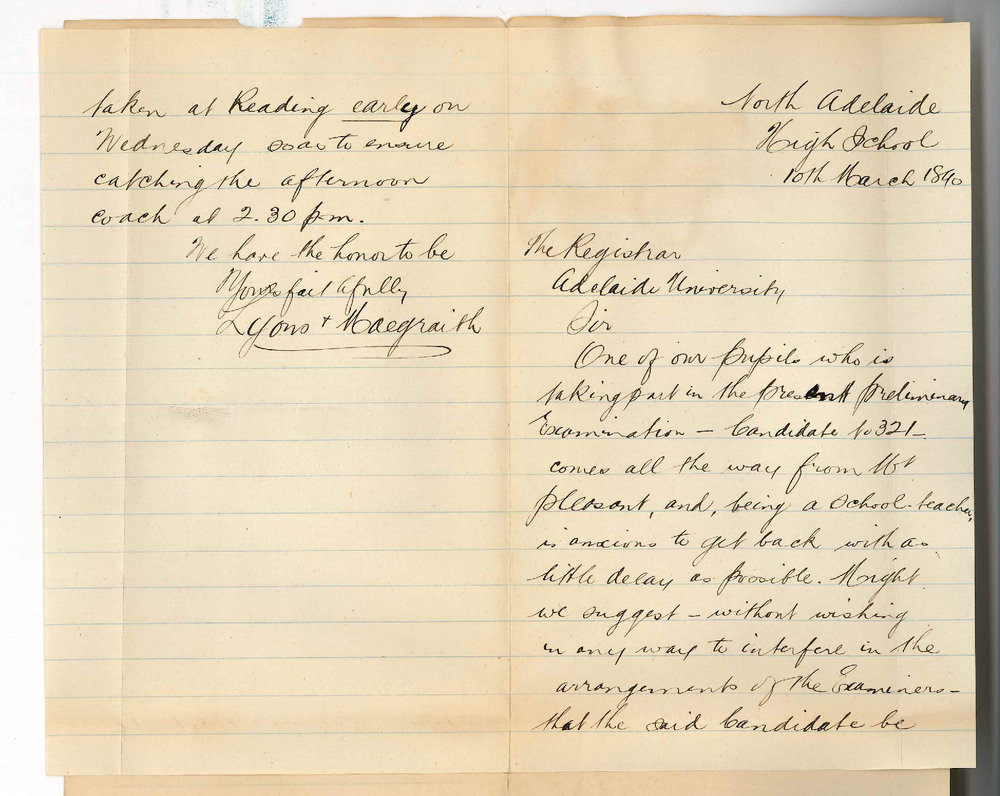 North Adelaide
High School
10th March 1890
The Registrar
Adelaide University
Sir
One of our pupils who is
taking part in the present preliminary
Examination - Candidate No 321 -
comes all the way from Mt
pleasant, and, being a school-teacher,
is anxious to get back with as
little delay as possible. Might
we suggest - without wishing
in any way to interfere in the
arrangements of the Examiners -
that the said Candidate be
taken at Reading early on
Wednesday so as to ensure
catching the afternoon
coach at 2.30 p.m.
We have the honor to be
Yours faithfully
Lyons & Maegraith